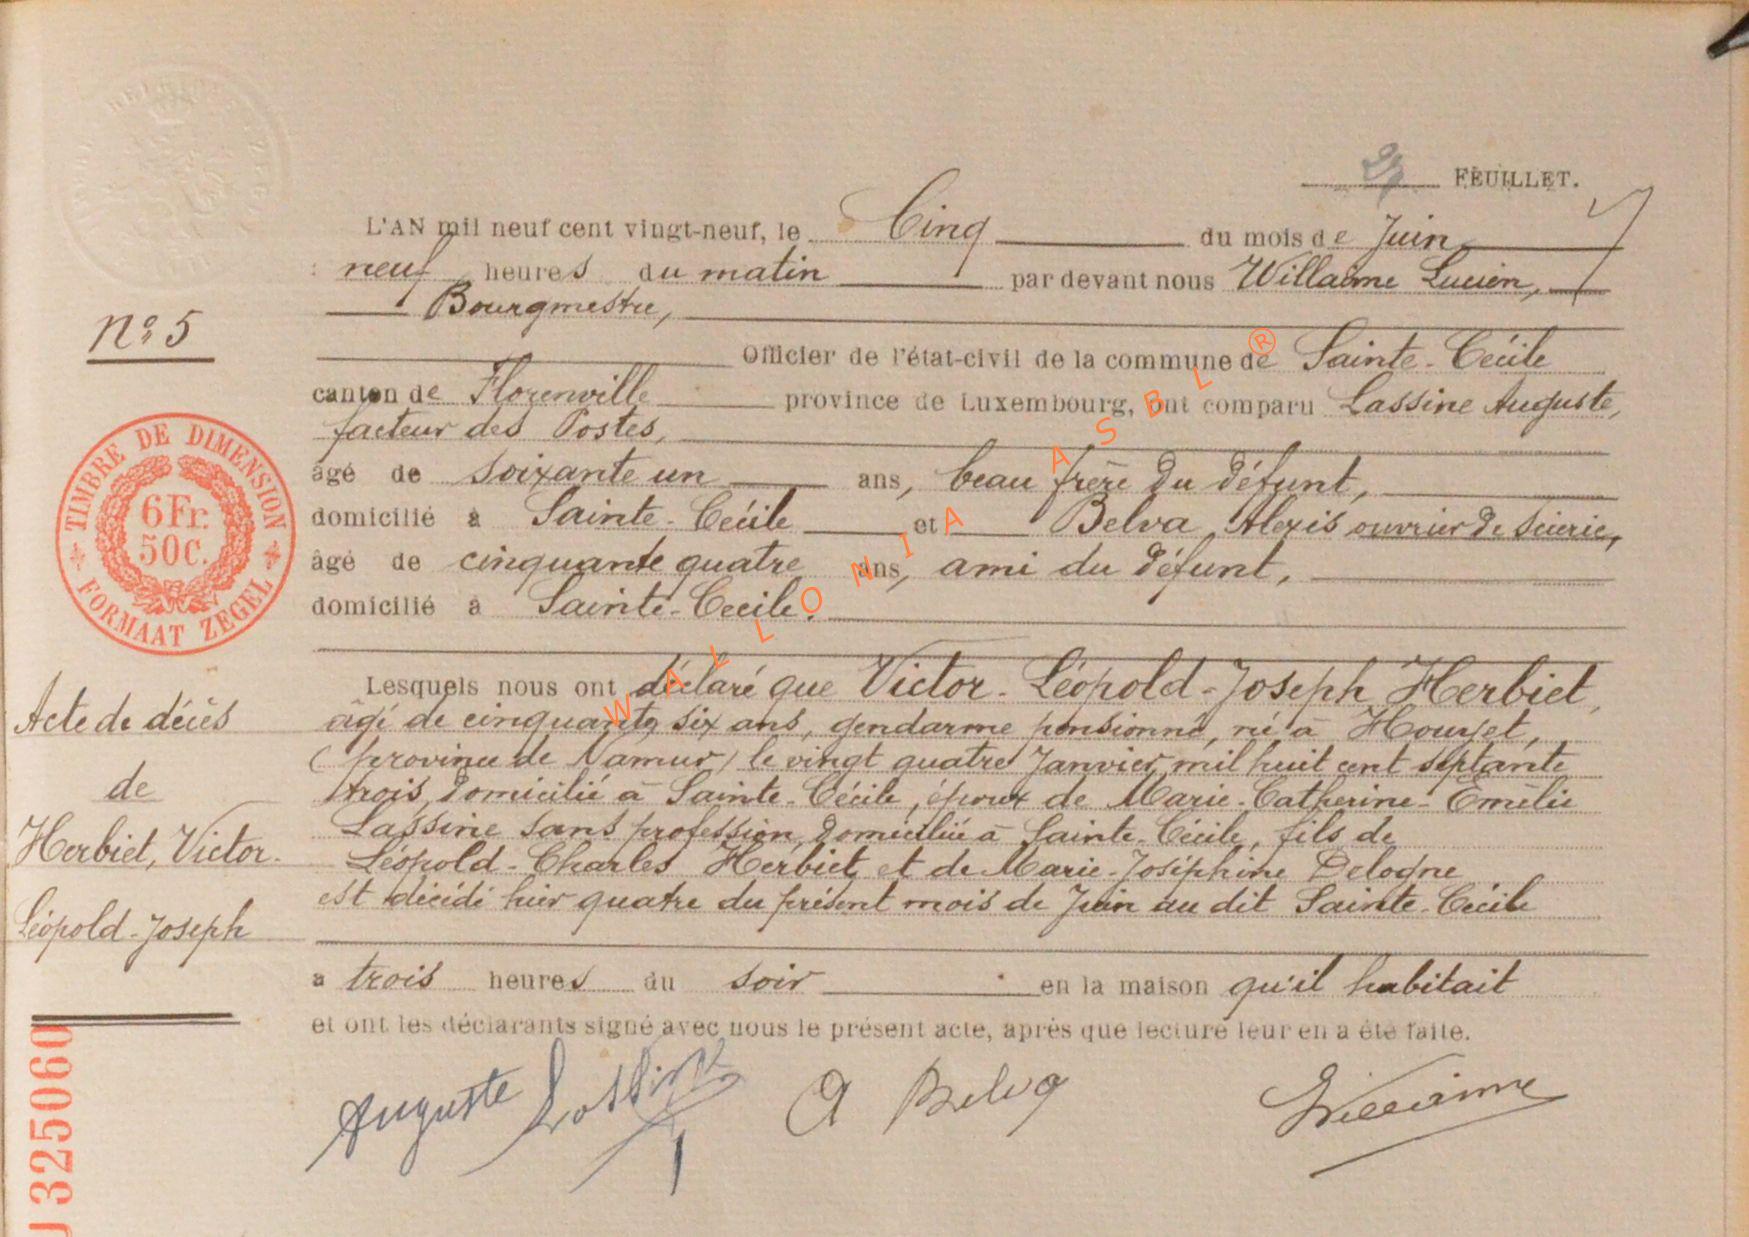 FEUILLET.
L'AN mil neuf cent vingt-neuf, le Cinq du mois de Juin
neuf heures du matin par devant nous Willaime Lucien,
Bourgmestre,
Officier de l'état-civil de la commune de Sainte-Cécile
canton de Florenville province de Luxembourg, ont comparu Lassine Auguste,
facteur des Postes,
âgé de soixante un ans, beau frère du défunt,
domicilié à Sainte-Cécile et Belva Alexis ouvrier de scierie,
âgé de cinquante quatre ans, ami du défunt,
domicilié à Sainte-Cecile.
Lesquels nous ont déclaré que Victor-Léopold-Joseph Herbiet,
âgé de cinquante six ans, gendarme pensionné, né à Houyet,
(province de Namur) le vingt quatre Janvier mil huit cent septante
trois, domicilié à Sainte-Cécile, époux de Marie-Catherine-Emélie
Lassine sans profession, domiciliée à Sainte-Cécile, fils de
Léopold-Charles Herbiet et de Marie-Joséphine Delogne
est décédé hier quatre du présent mois de Juin au dit Sainte-Cécile
a trois heures du soir en la maison qu'il habitait
et ont les déclarants signé avec nous le présent acte, après que lecture leur en a été faite.
Auguste Lassine A Belva Willaime
N° 5
TIMBRE DE DIMENSION
6Fr.
50C.
FORMAAT ZEGEL
Acte de décès
de
Herbiet, Victor-
Léopold-Joseph
J 325060
WALLONIA ASBL ®